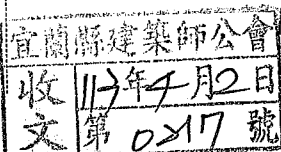 宜蘭縣建築師公會
收 113年4月2日
文 第0217號